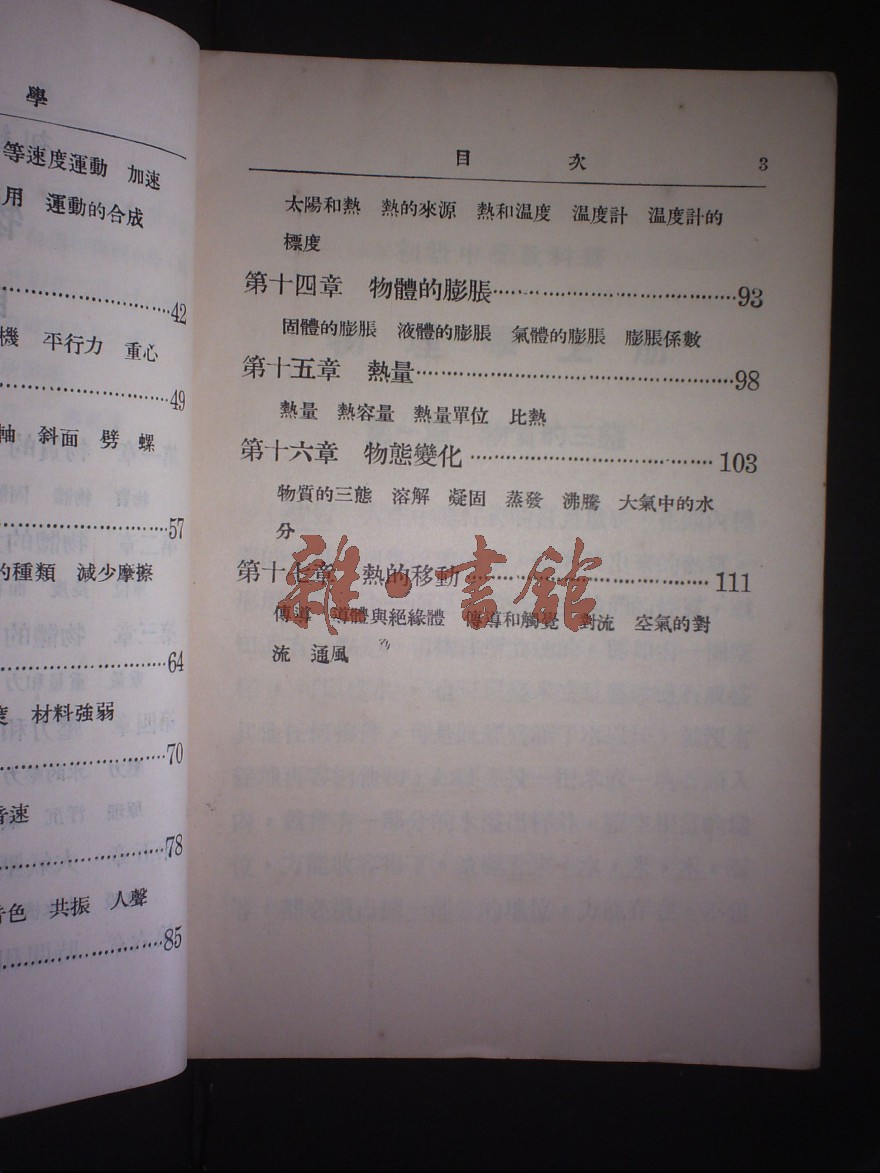 學
等速度運動 加速
用 運動的合成
……42
機 平行力 重心
……49
軸 斜面 劈 螺
……57
的種類 減少摩擦
……64
度 材料強弱
……70
音速
……78
音色 共振 人聲
……85
目 次 3
太陽和熱 熱的來源 熱和温度 温度計 温度計的
標度
第十四章 物體的膨脹……93
固體的膨脹 液體的膨脹 氣體的膨脹 膨脹係數
第十五章 熱量……98
熱量 熱容量 熱量單位 比熱
第十六章 物態變化……103
物質的三態 溶解 凝固 蒸發 沸騰 大氣中的水
分
第十七章 熱的移動……111
傳導 導體與絕緣體 傳導和觸覺 對流 空氣的對
流 通風
雜·書館